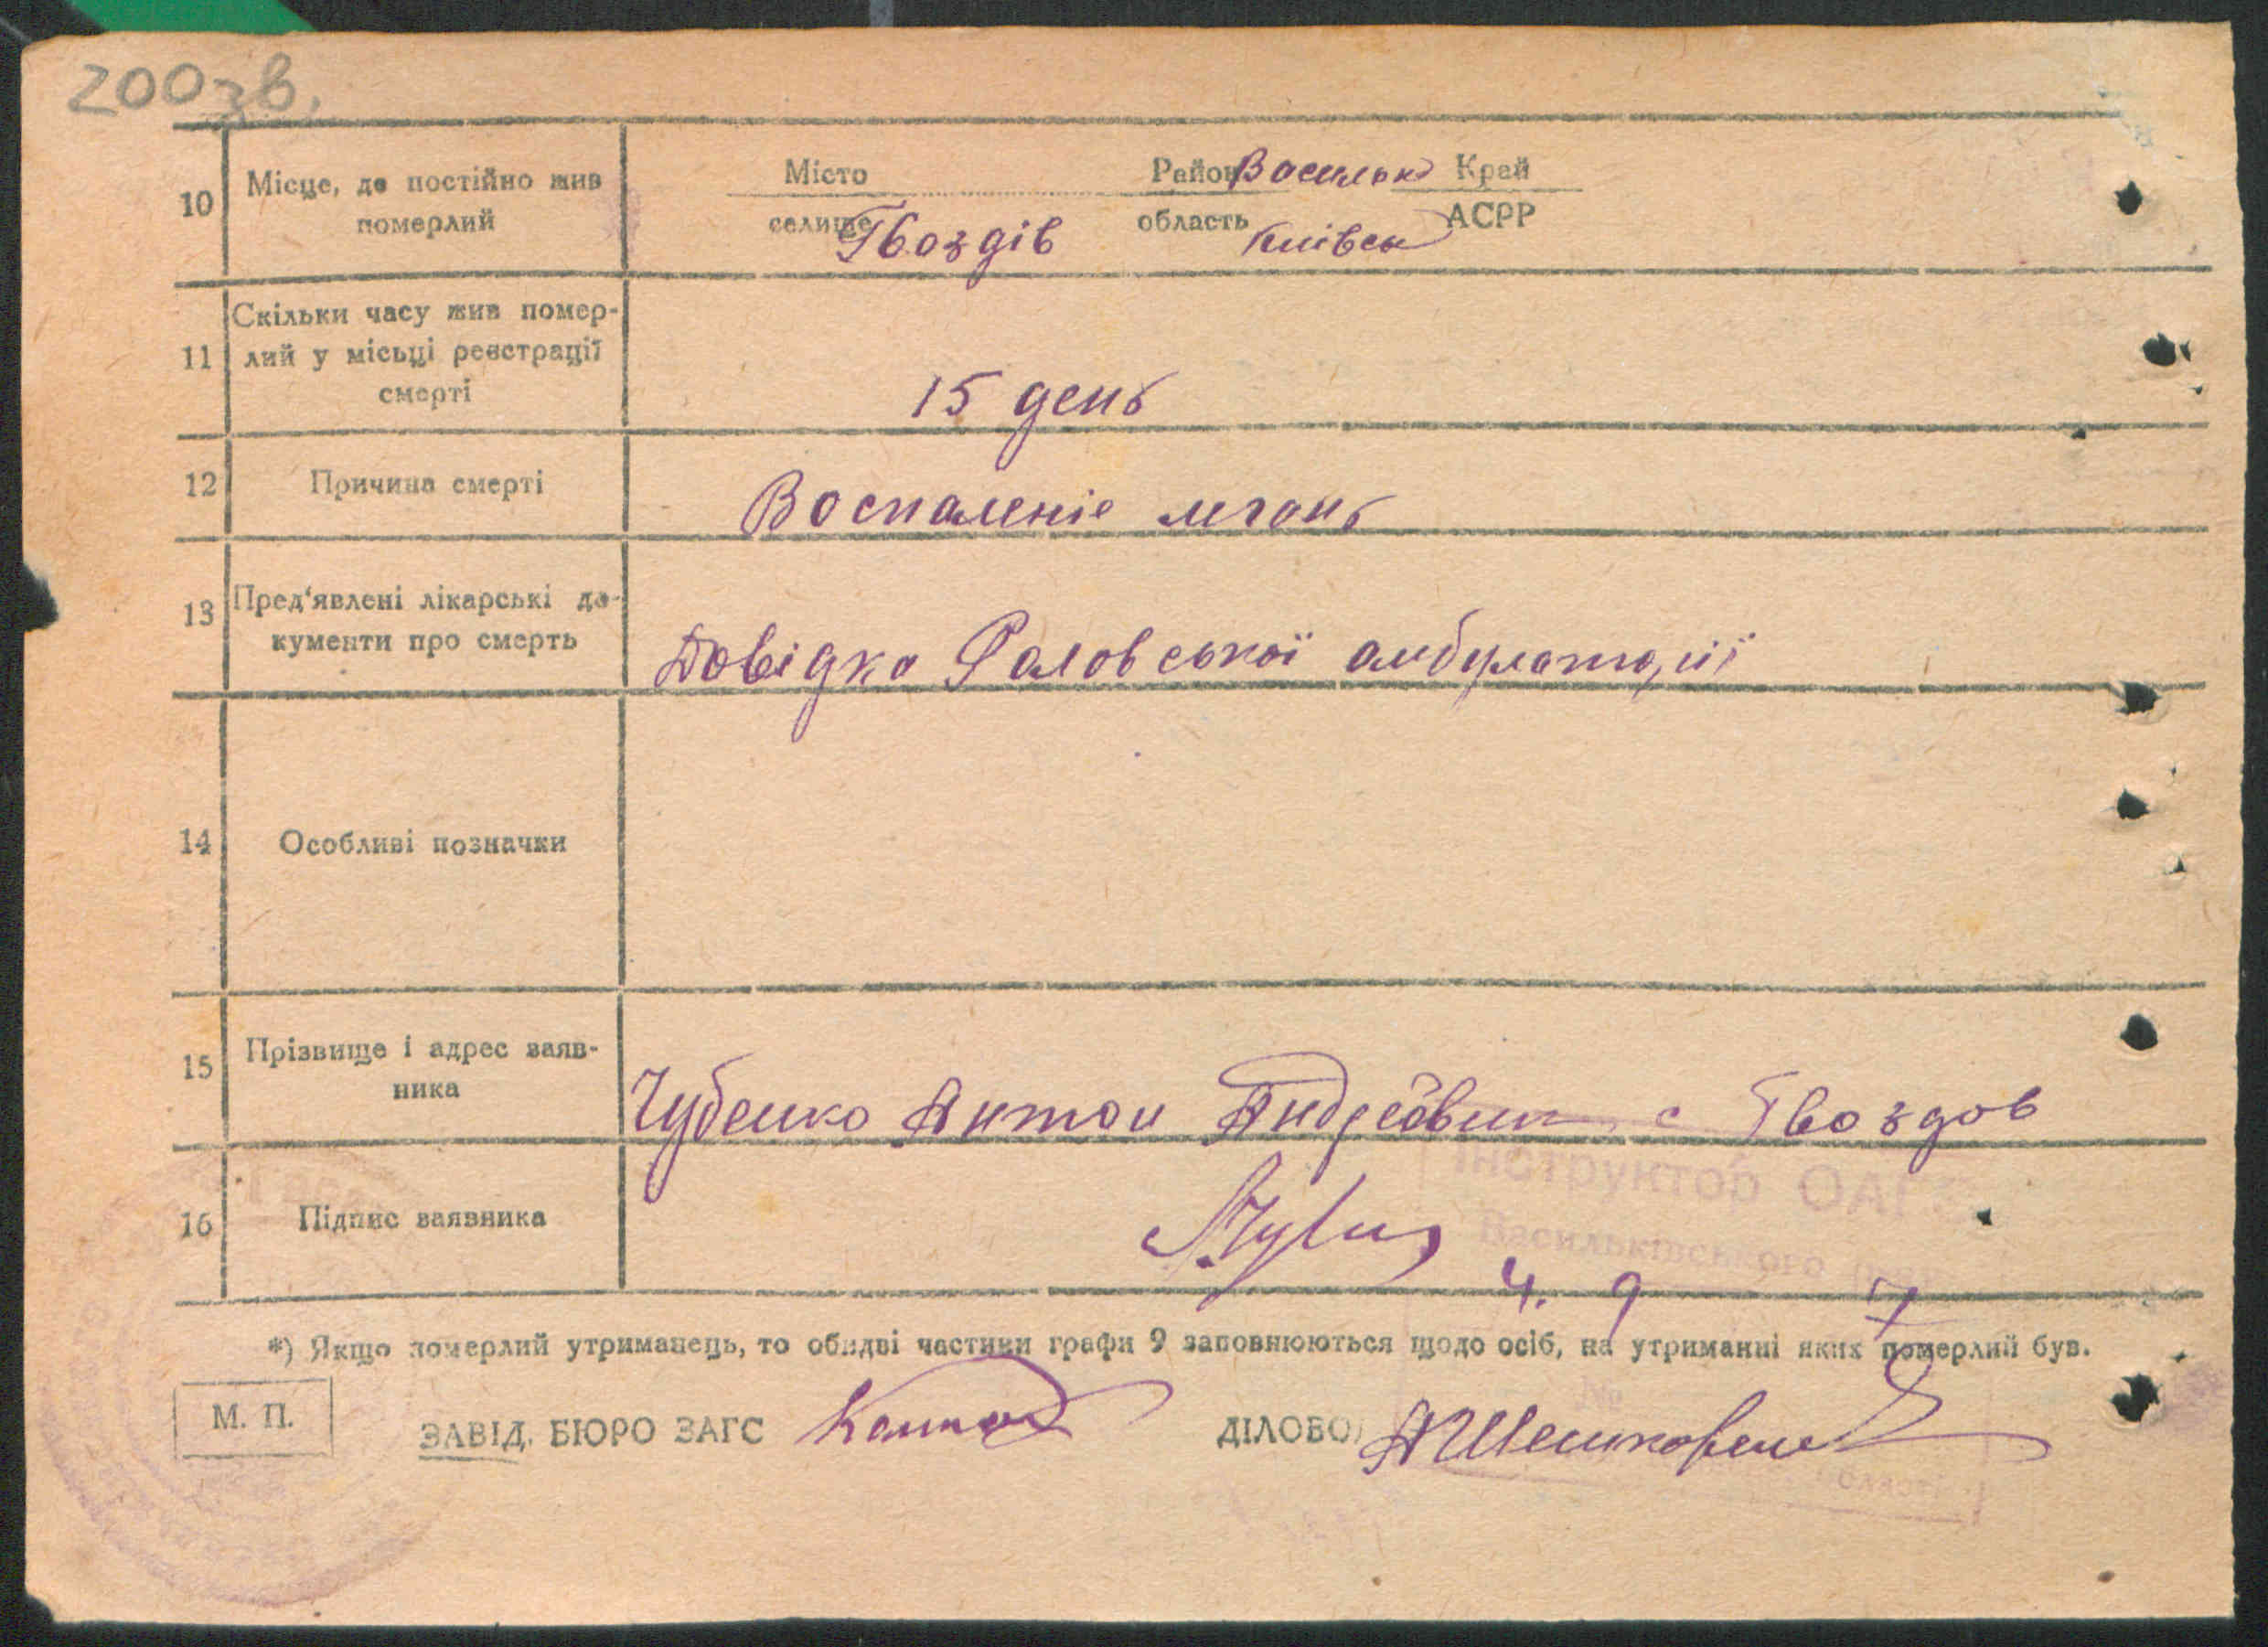 200зв.
10 Місце, де постійно жив померлий
Місто Район Васильк Край
селище Гвоздів область Київськ АСРР
11 Скільки часу жив помер-
лий у місьці реєстрації
смерті
15 день
12 Причина смерті Воспаленіе
13 Пред'явлені лікарські до-
кументи про смерть
Довідка амбулаторії
14 Особливі позначки
15 Прізвище і адрес заяв-
ника
Чубенко Антон Андреевич с Гвоздов
Інструктор ОАГС
Васильківського
16 Підпис заявника
4. 9 7
*) Якщо померлий утриманець, то обидві частини графи 9 заповнюються щодо осіб, на утриманні яких померлий був.
№
М. П.
ЗАВІД. БЮРО ЗАГС ДІЛОВО
області